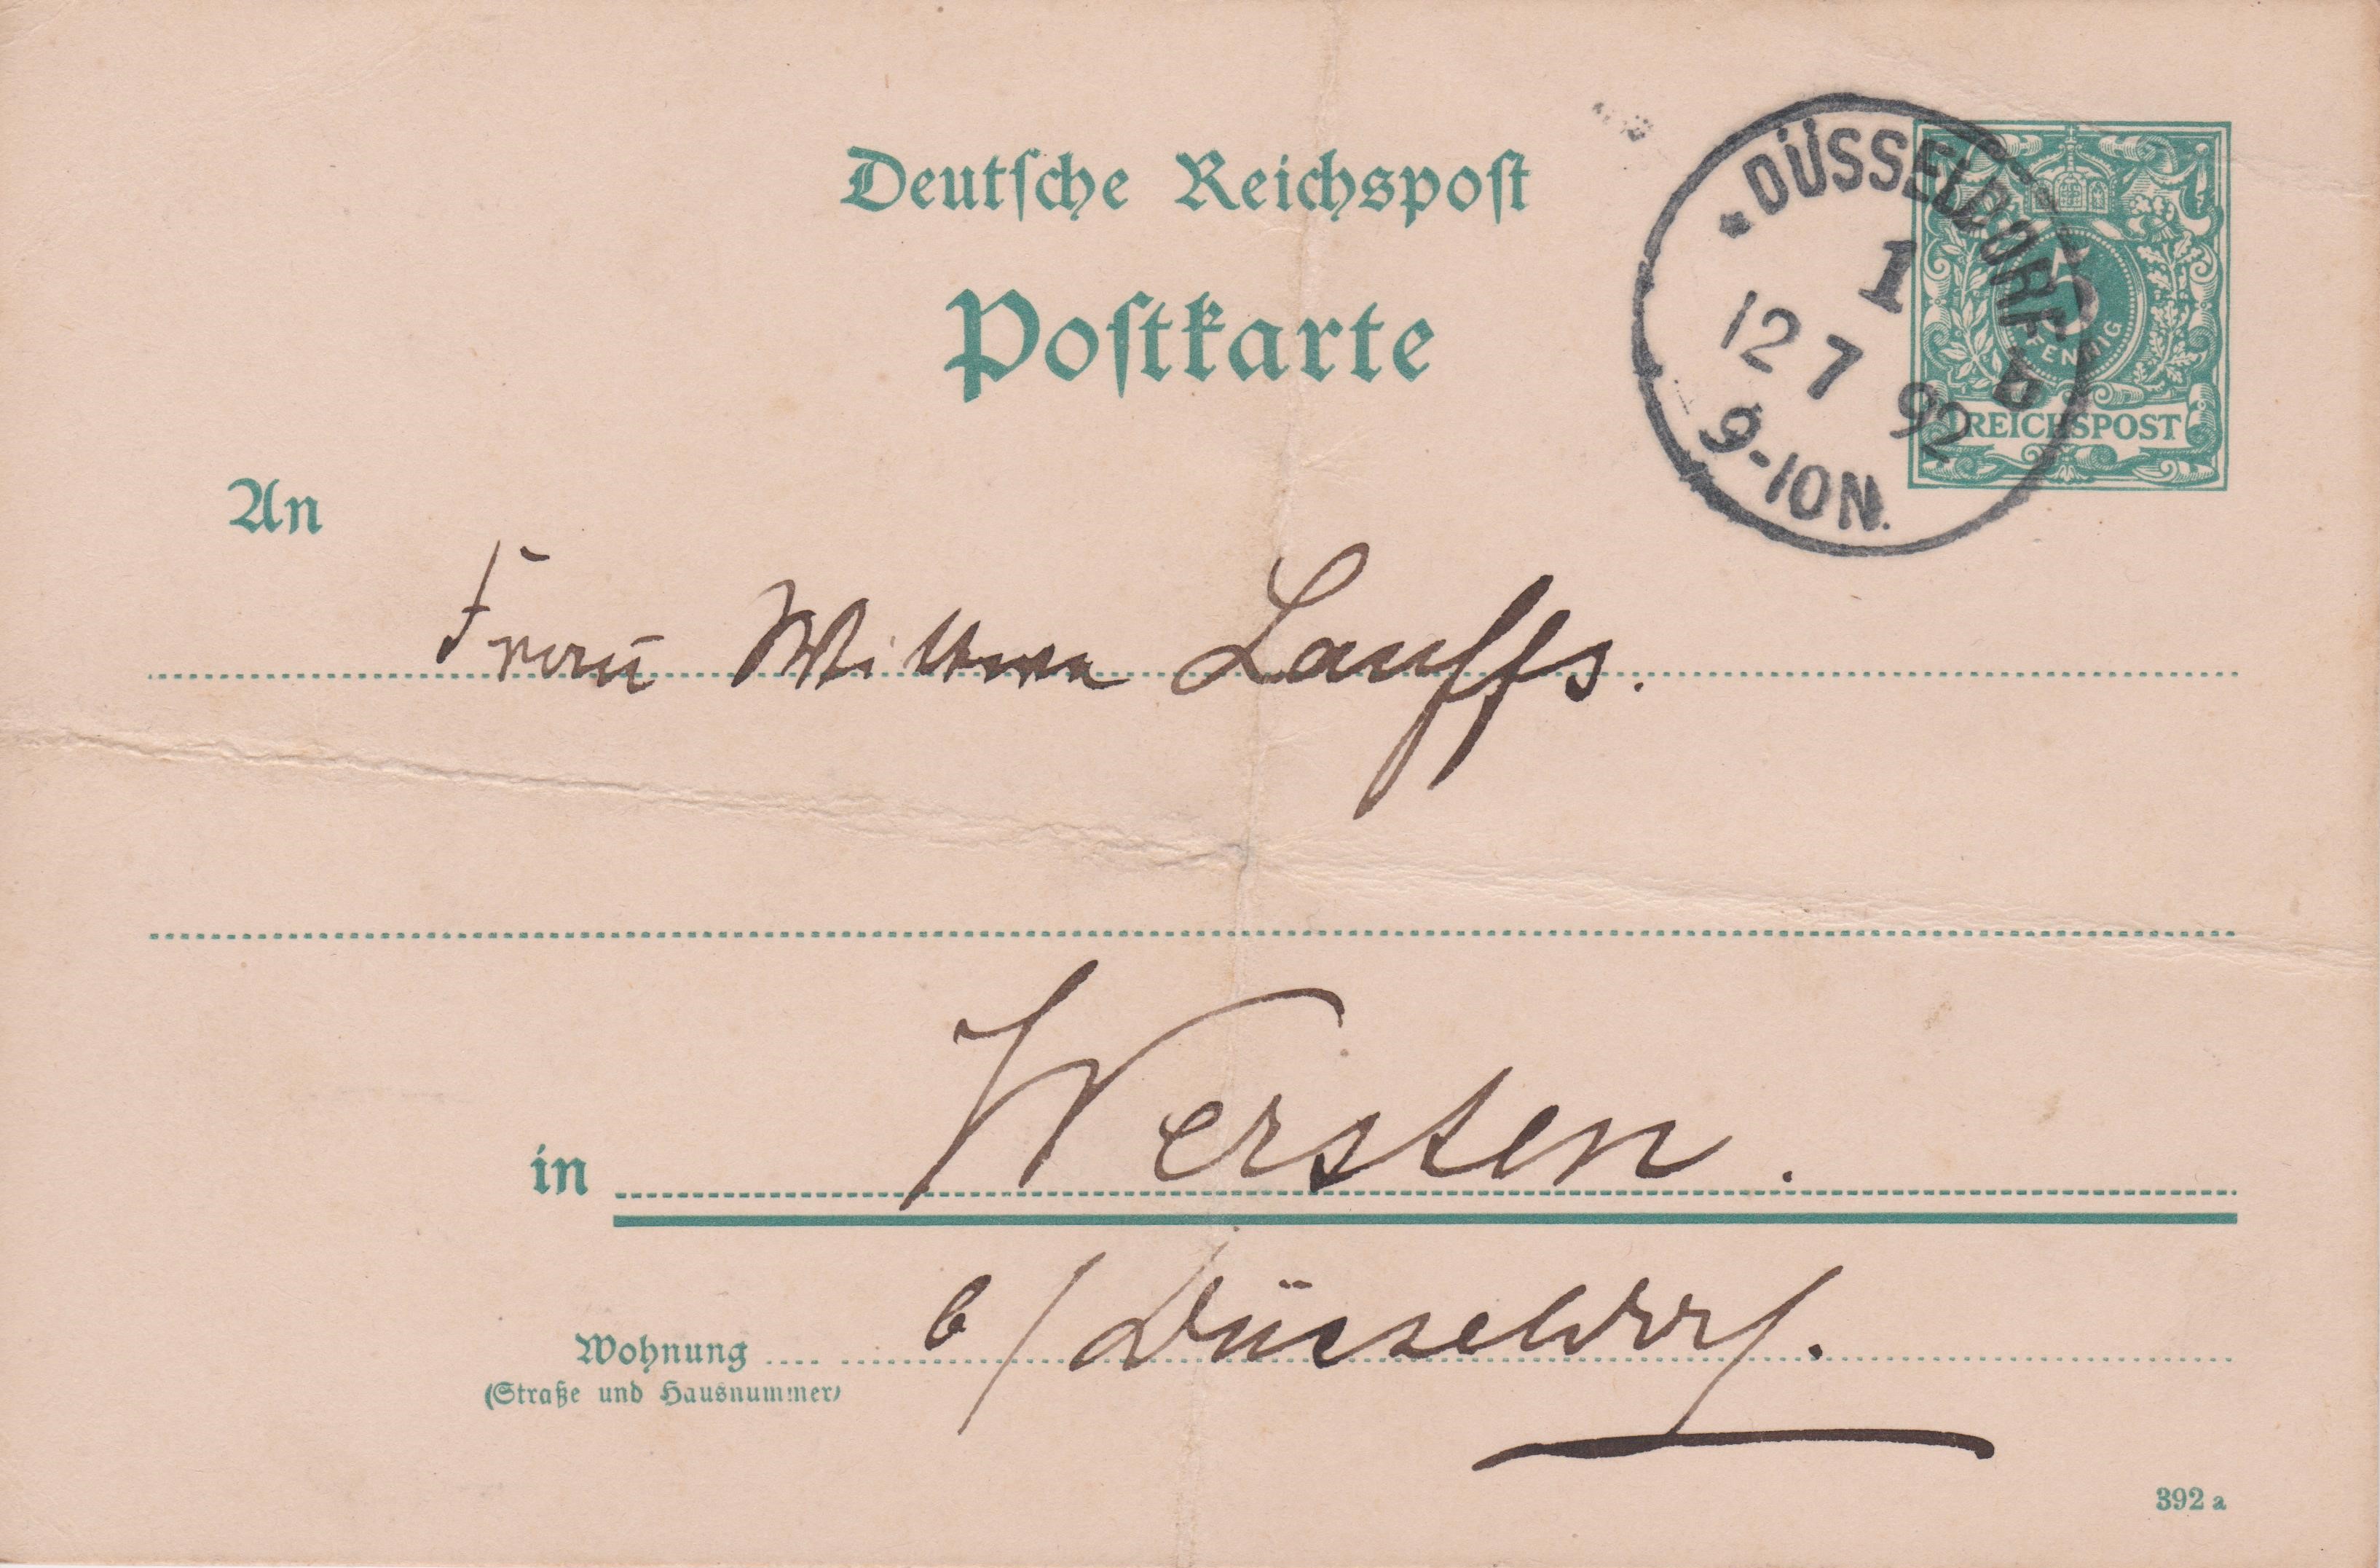 Deutsche Reichspost
Postkarte
* DÜSSELDORF b
1
12 7 92
9-10 N.
5
PFENNIG
REICHSPOST
An
Frau Wittwe Lauffs.
in Wersten.
b/Düsseldorf.
Wohnung
(Straße und Hausnummer)
392 a